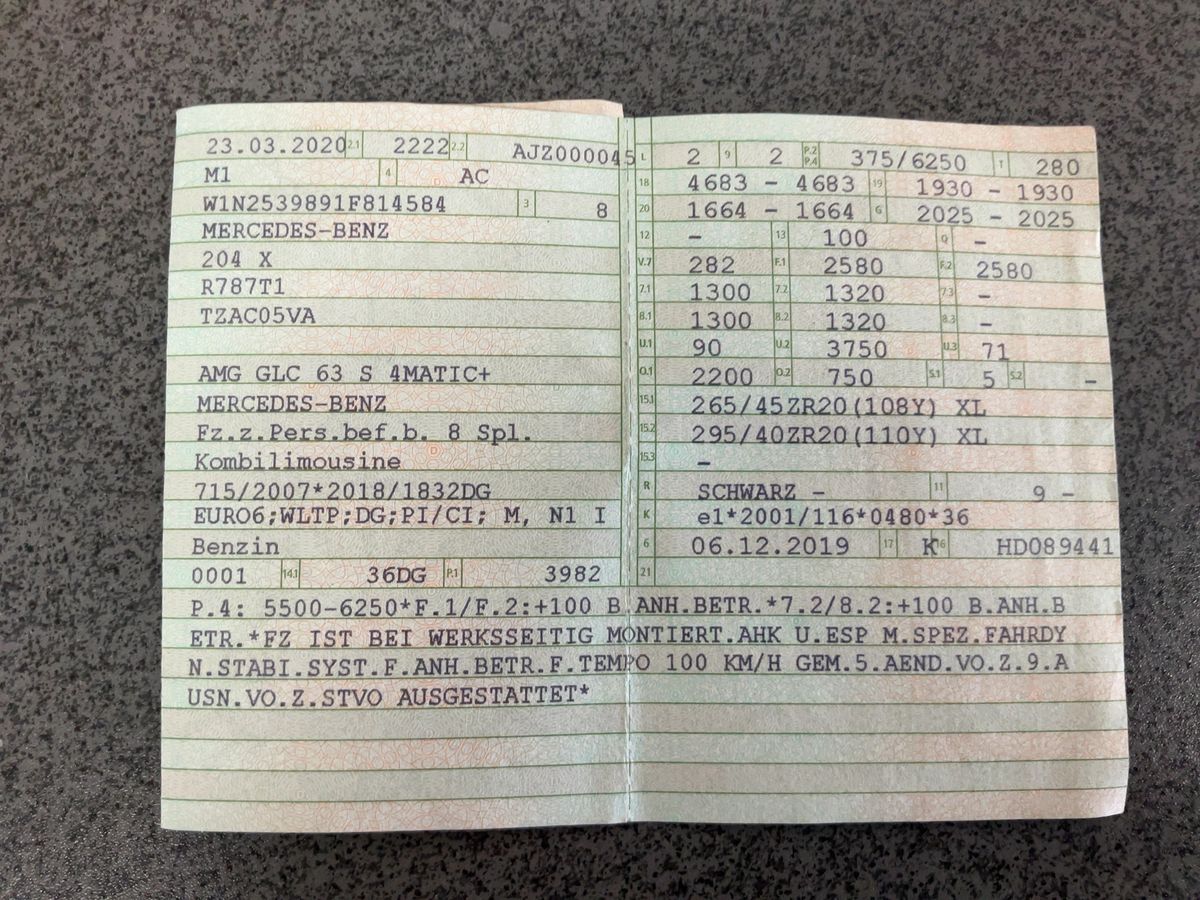 23.03.2020 2.1 2222 2.2 AJZ000045
M1 4 AC
W1N2539891F814584 3 8
MERCEDES-BENZ
204 X
R787T1
TZAC05VA
AMG GLC 63 S 4MATIC+
MERCEDES-BENZ
Fz.z.Pers.bef.b. 8 Spl.
Kombilimousine
715/2007*2018/1832DG
EURO6;WLTP;DG;PI/CI; M, N1 I
Benzin
0001 14.1 36DG P.1 3982
L 2 9 2 P.2 P.4 375/6250 T 280
18 4683 - 4683 19 1930 - 1930
20 1664 - 1664 G 2025 - 2025
12 - 13 100 Q -
V.7 282 F.1 2580 F.2 2580
7.1 1300 7.2 1320 7.3 -
8.1 1300 8.2 1320 8.3 -
U.1 90 U.2 3750 U.3 71
O.1 2200 O.2 750 S.1 5 S.2 -
15.1 265/45ZR20(108Y) XL
15.2 295/40ZR20(110Y) XL
15.3 -
R SCHWARZ - 11 9 -
K e1*2001/116*0480*36
6 06.12.2019 17 K 16 HD089441
21
P.4: 5500-6250*F.1/F.2:+100 B.ANH.BETR.*7.2/8.2:+100 B.ANH.B
ETR.*FZ IST BEI WERKSSEITIG MONTIERT.AHK U.ESP M.SPEZ.FAHRDY
N.STABI.SYST.F.ANH.BETR.F.TEMPO 100 KM/H GEM.5.AEND.VO.Z.9.A
USN.VO.Z.STVO AUSGESTATTET*